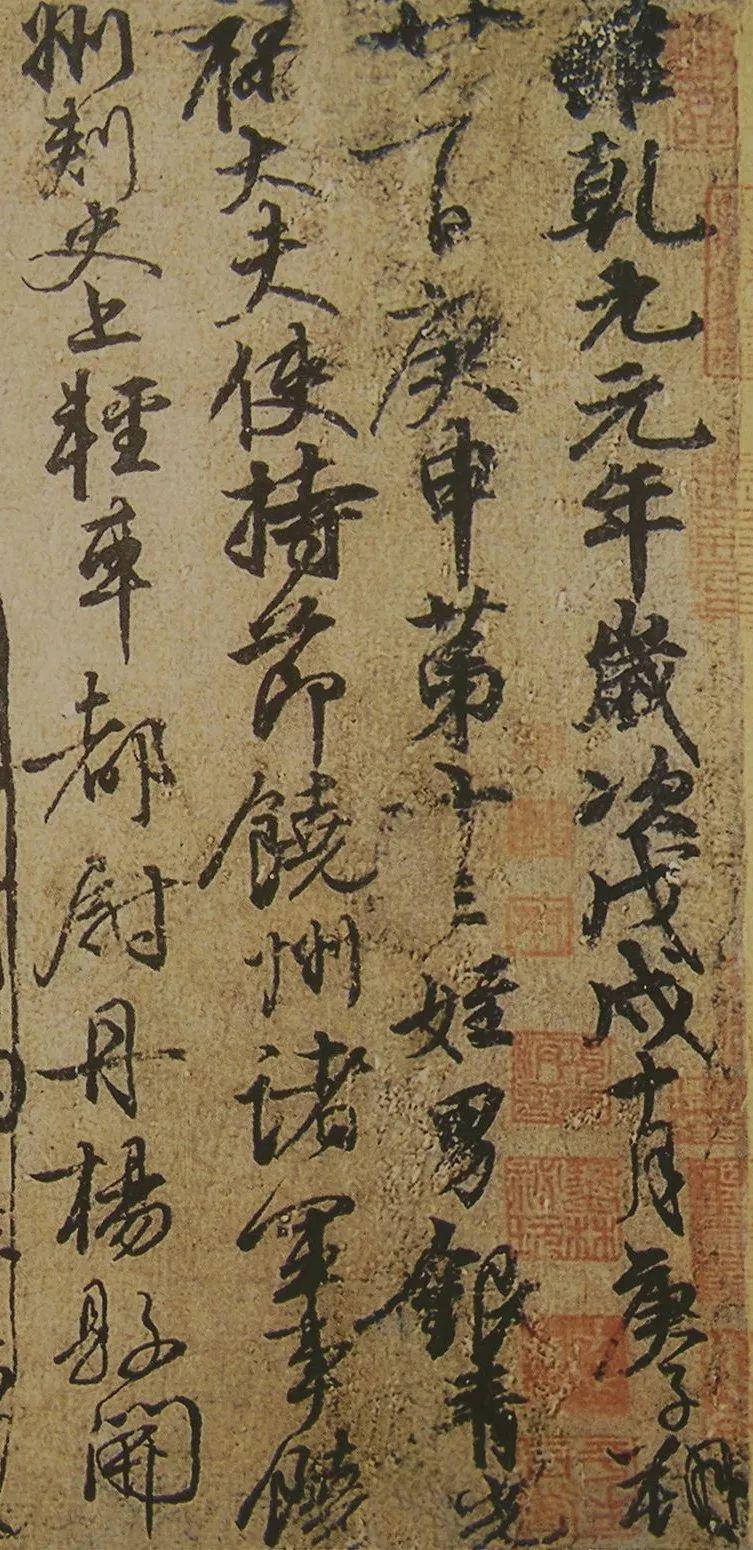 維乾元元年歲次戊戌十月庚子朔
廿一日庚申第十三姪男銀青光
祿大夫使持節饒州諸軍事饒
州刺史上輕車都尉丹楊縣開